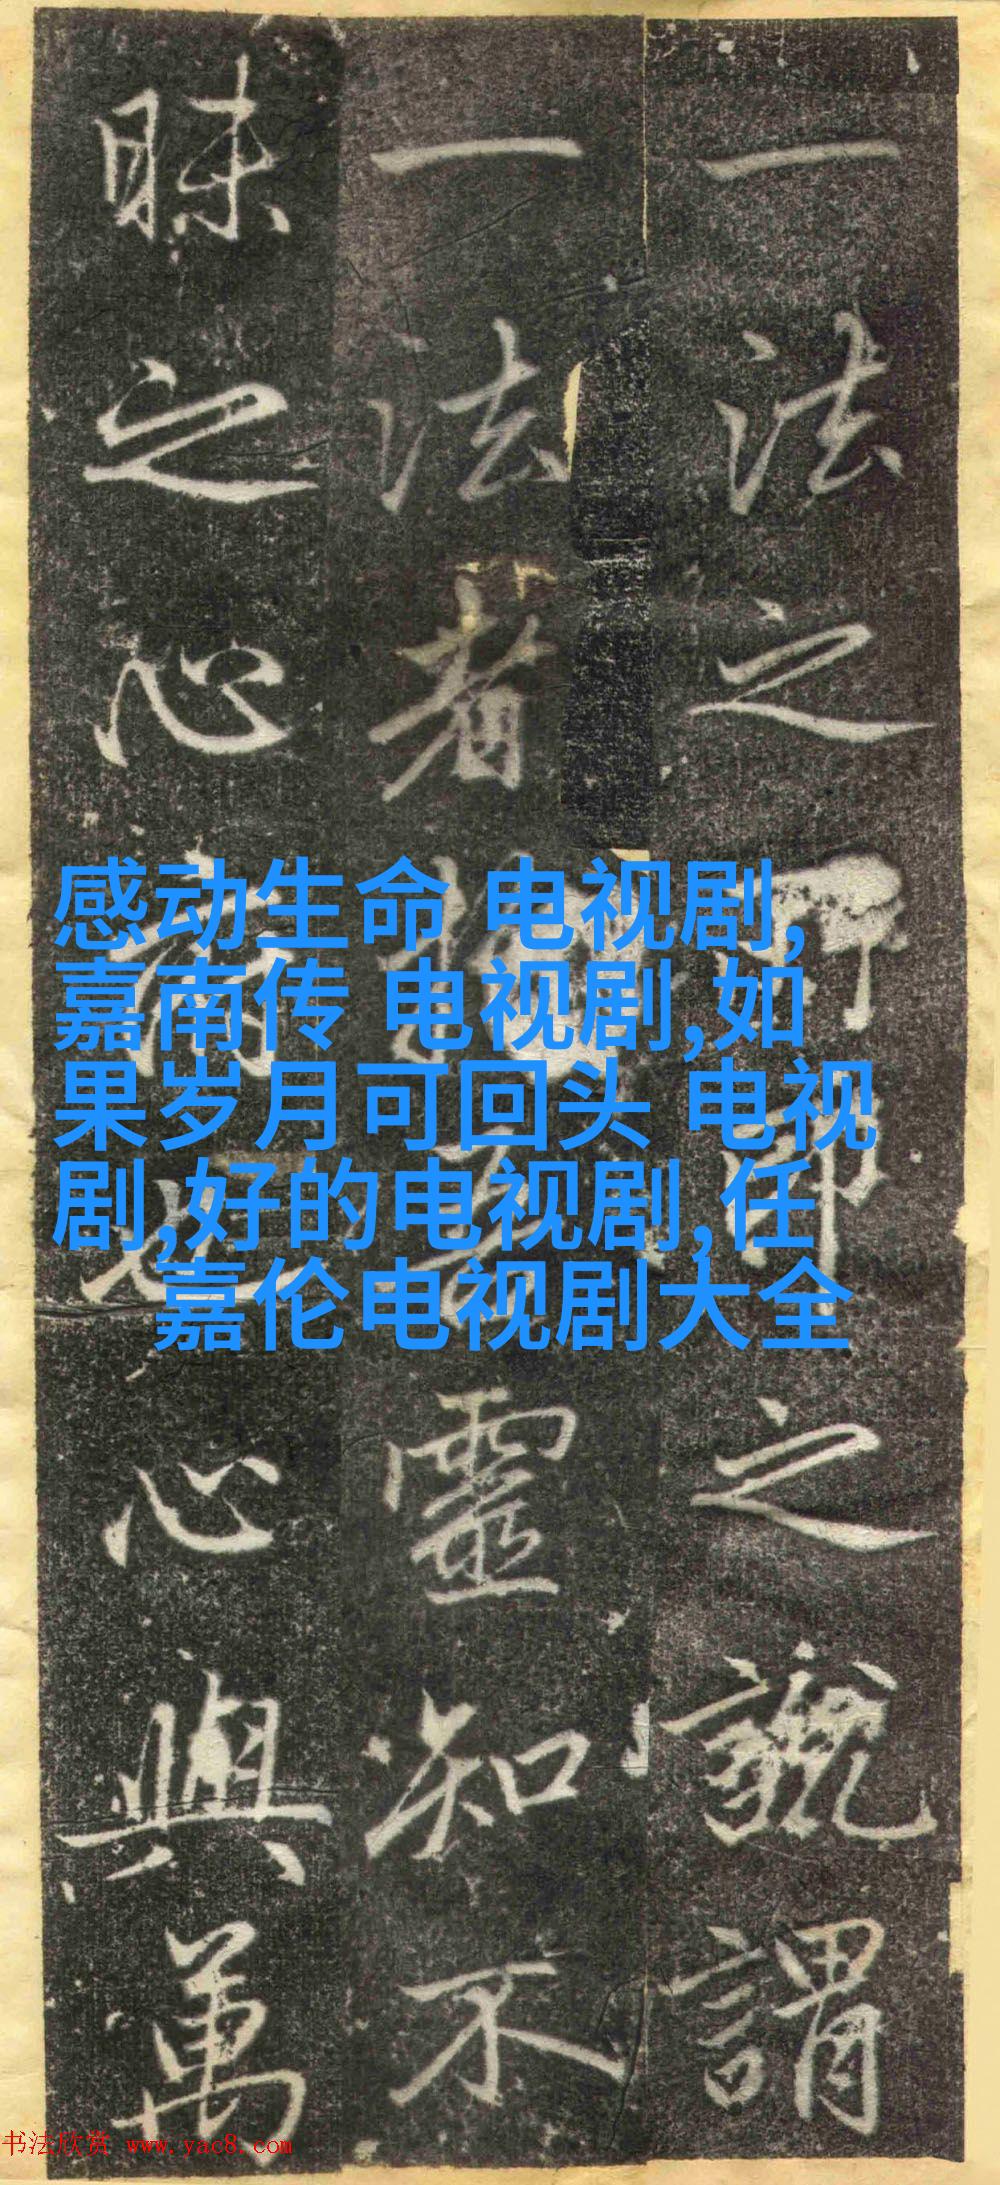 一法之可印之說謂
一法者靈知不
昧之心也心與萬
感动生命 电视剧,
嘉南传 电视剧,如
果岁月可回头 电视
剧,好的电视剧,任
嘉伦电视剧大全
书法欣赏 www.yac8.com